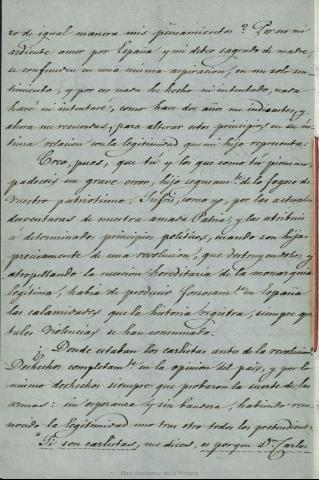 zo de igual manera mis pensamientos? Por eso mi
ardiente amor por España y mi deber sagrado de madre,
se confunden en una misma aspiracion, en un solo sen-
timiento, y por eso nada he hecho ni intentado, nada
haré ni intentaré, como hace dos años me indicastes, y
ahora me recuerdas, para alterar estos principios en su ín-
tima relacion con la legitimidad que mi hijo representa.
Creo, pues, que tú y los que como tú piensan,
padeceis un grave error, hijo seguram.te de lo fogoso de
vuestro patriotismo. Sufris, como yo, por las actuales
desventuras de nuestra amada Patria, y las atribuis
á determinados principios politicos, cuando son hijas
precisamente de una revolucion, que destruyendolos y
atropellando la sucesion hereditaria de la monarquia
legítima, habia de producir forzosam.te en España
las calamidades que la historia registra, siempre que
tales violencias se han consumado.
¿Donde estaban los carlistas antes de la revolucion?
Deshechos completam.te en la opinion del pais, y por lo
mismo deshechos siempre que probaron la suerte de las
armas: sin esperanza y sin bandera, habiendo reco-
nocido la legitimidad uno tras otro todos los pretendient.s
"Si son carlistas, me dices, es porque D.n Carlos
Real Academia de la Historia